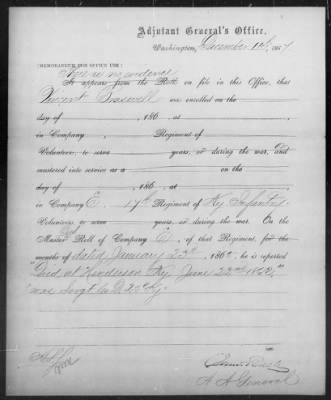 Adjutant General's Office,
Washington, December 12th, 1867
[MEMORANDUM FOR OFFICE USE.]
There is no evidence
It appears from the Rolls on file in this Office, that
Vincent was enrolled on the
day of , 186 , at
in Company , Regiment of
Volunteers, to serve years, or during the war, and
mustered into service as a on the
day of , 186 , at
in Company E. 17th Regiment of Ky Infantry
Volunteers, to serve years, or during the war. On the
Muster Roll of Company E, of that Regiment, for the
months of dated January 23d, 186 , he is reported
"Died at Henderson Ky June 22nd 1862,"
was Sergt Co D. 25 Ky.
A. A. General